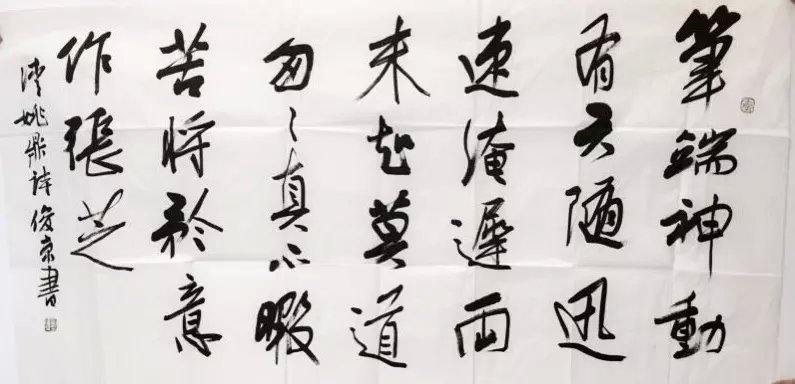 筆端神動
有天隨迅
速淹遲兩
未知莫道
匆々真不暇
苦將矜意
作張芝
清姚鼐詩俊京書